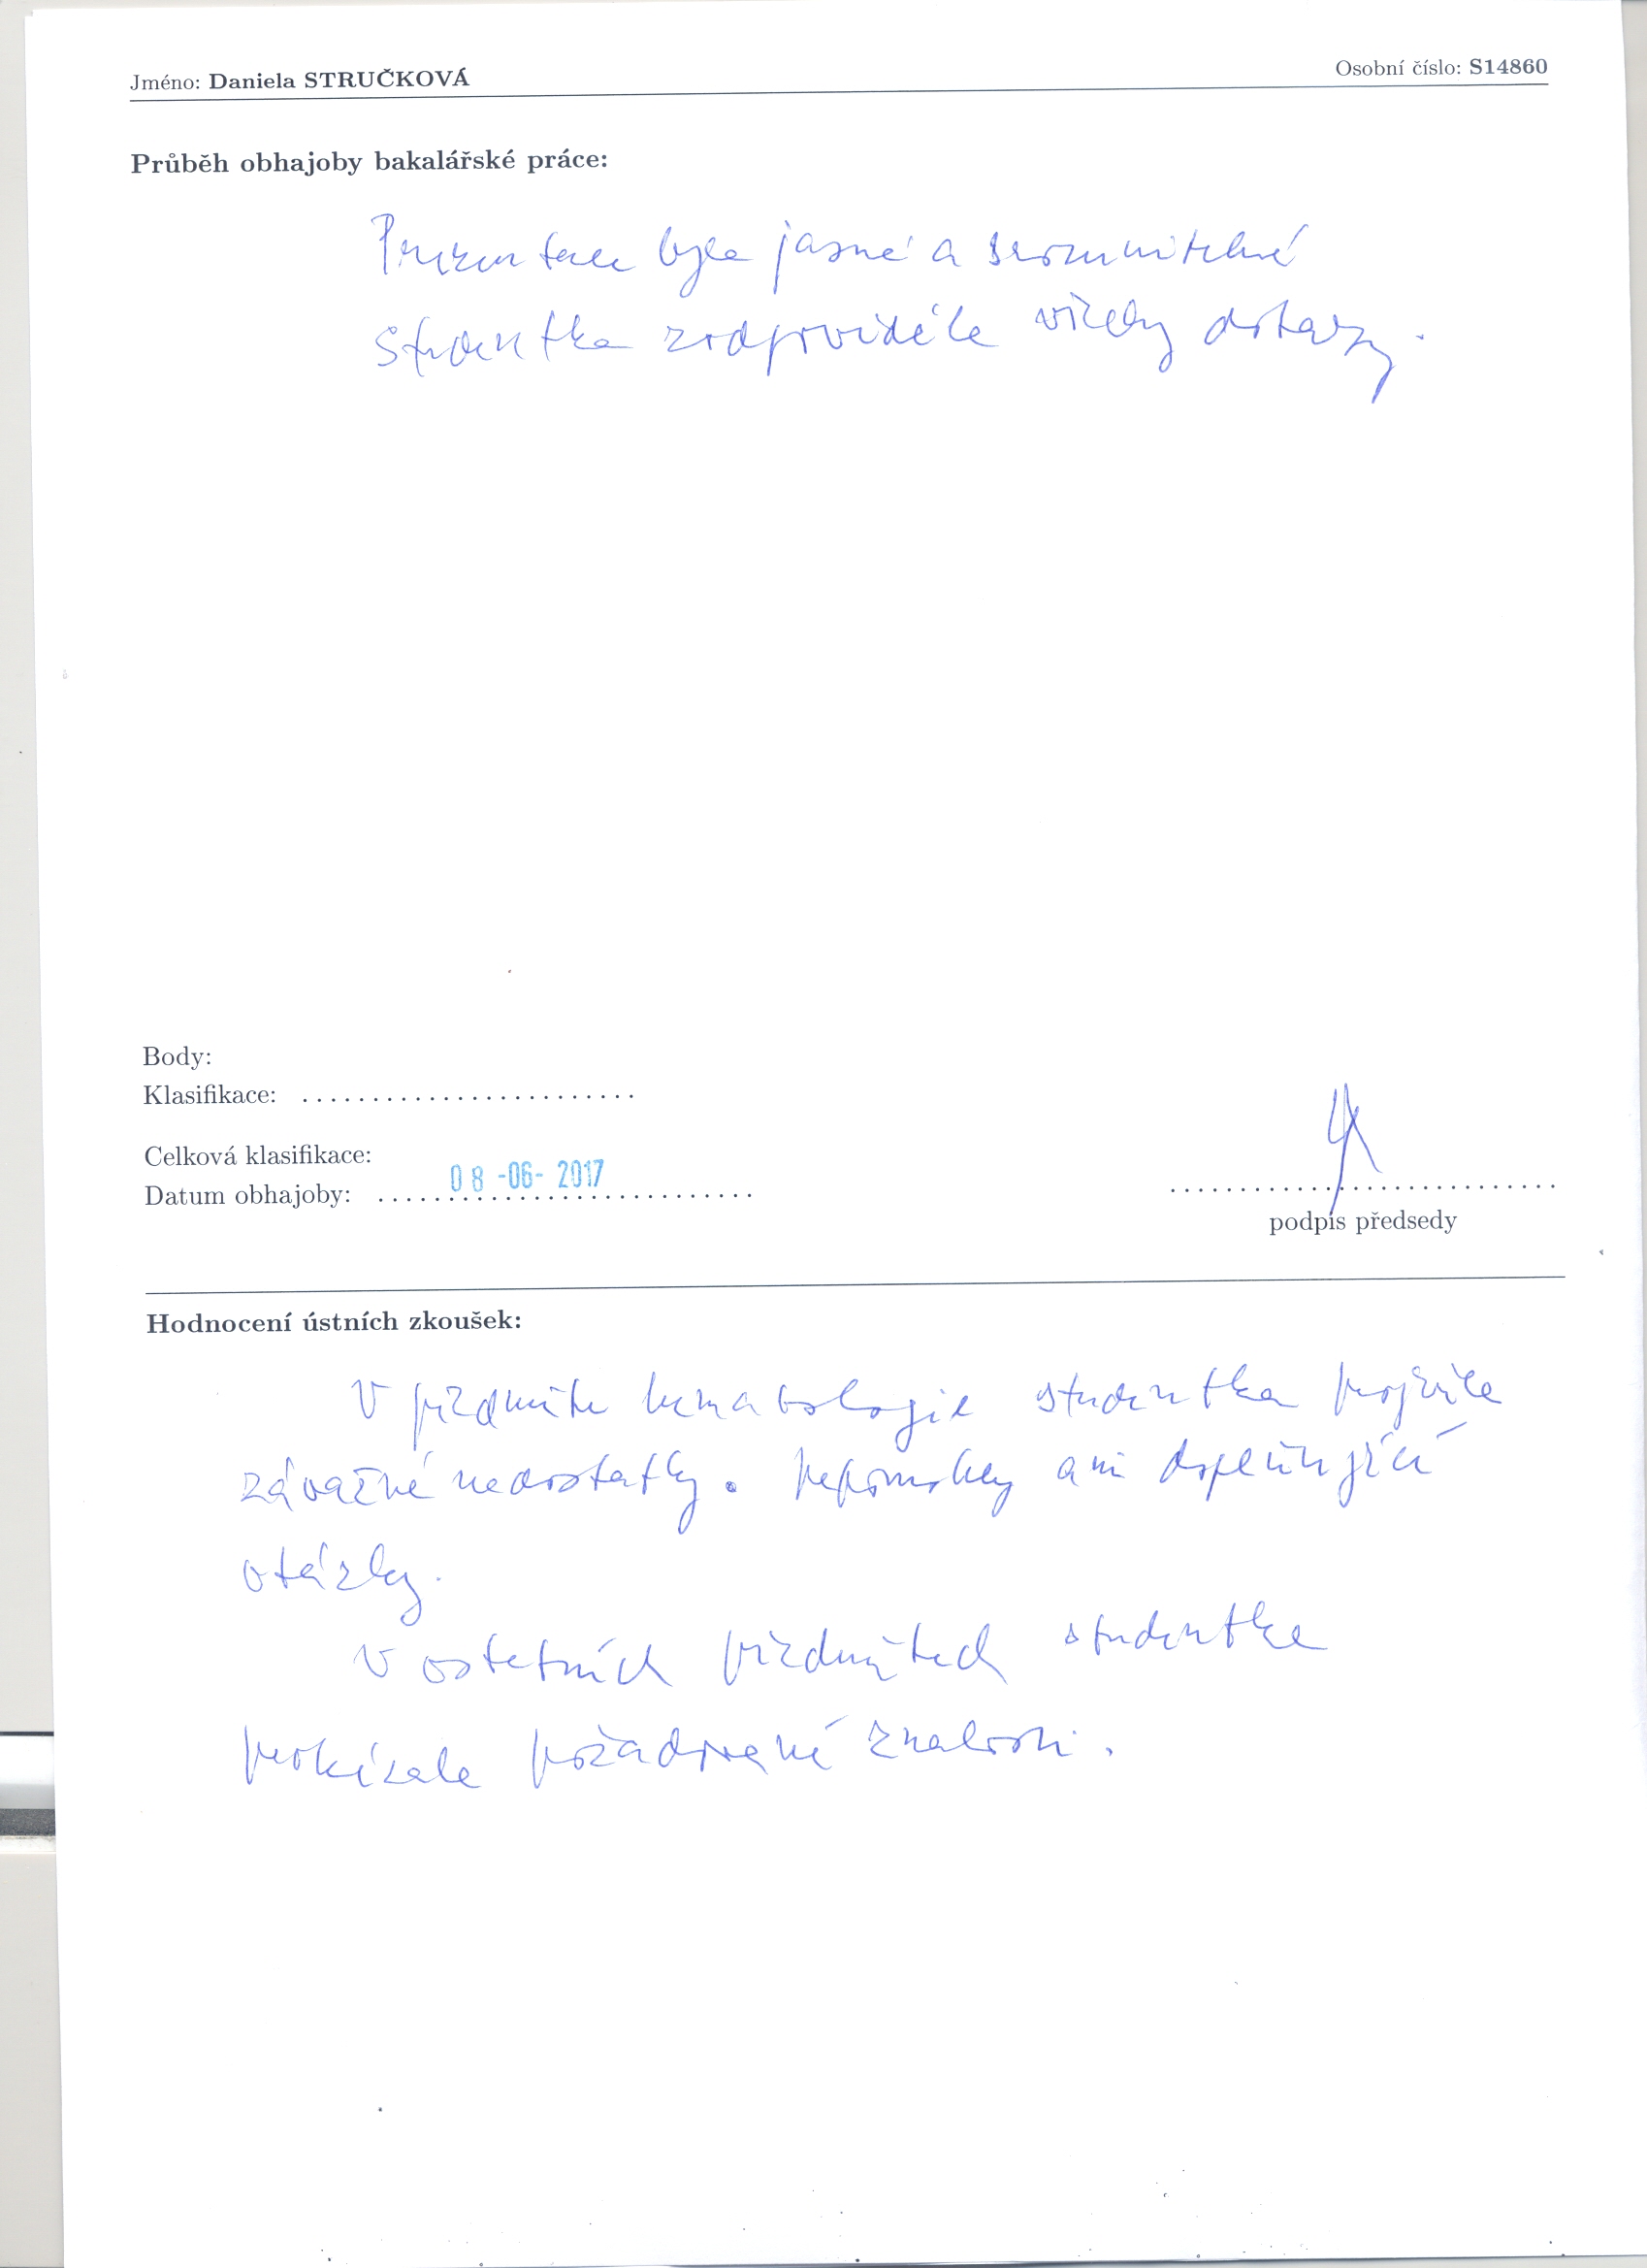 Jméno: Daniela STRUČKOVÁ Osobní číslo: S14860
Průběh obhajoby bakalářské práce:
Prezentace byla jasná a srozumitelná
studentka zodpověděla všechny dotazy.
Body:
Klasifikace: ........................
Celková klasifikace:
Datum obhajoby: 08-06-2017
podpis předsedy
Hodnocení ústních zkoušek:
V předmětu hematologie studentka projevila
závažné nedostatky. Nepomohly ani doplňující
otázky.
V ostatních předmětech studentka
prokázala požadované znalosti.